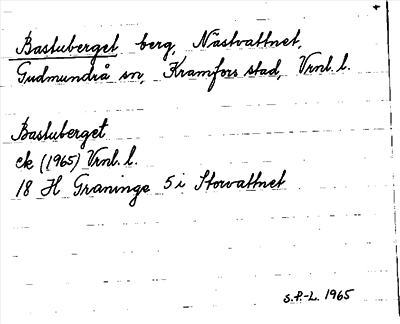 Bastuberget, berg, Nästvattnet,
Gudmundrå sn, Kramfors stad, Vrnl. l.
Bastuberget
ek (1965) Vrnl. l.
18 H Graninge 5 i Storvattnet
S.P-L. 1965